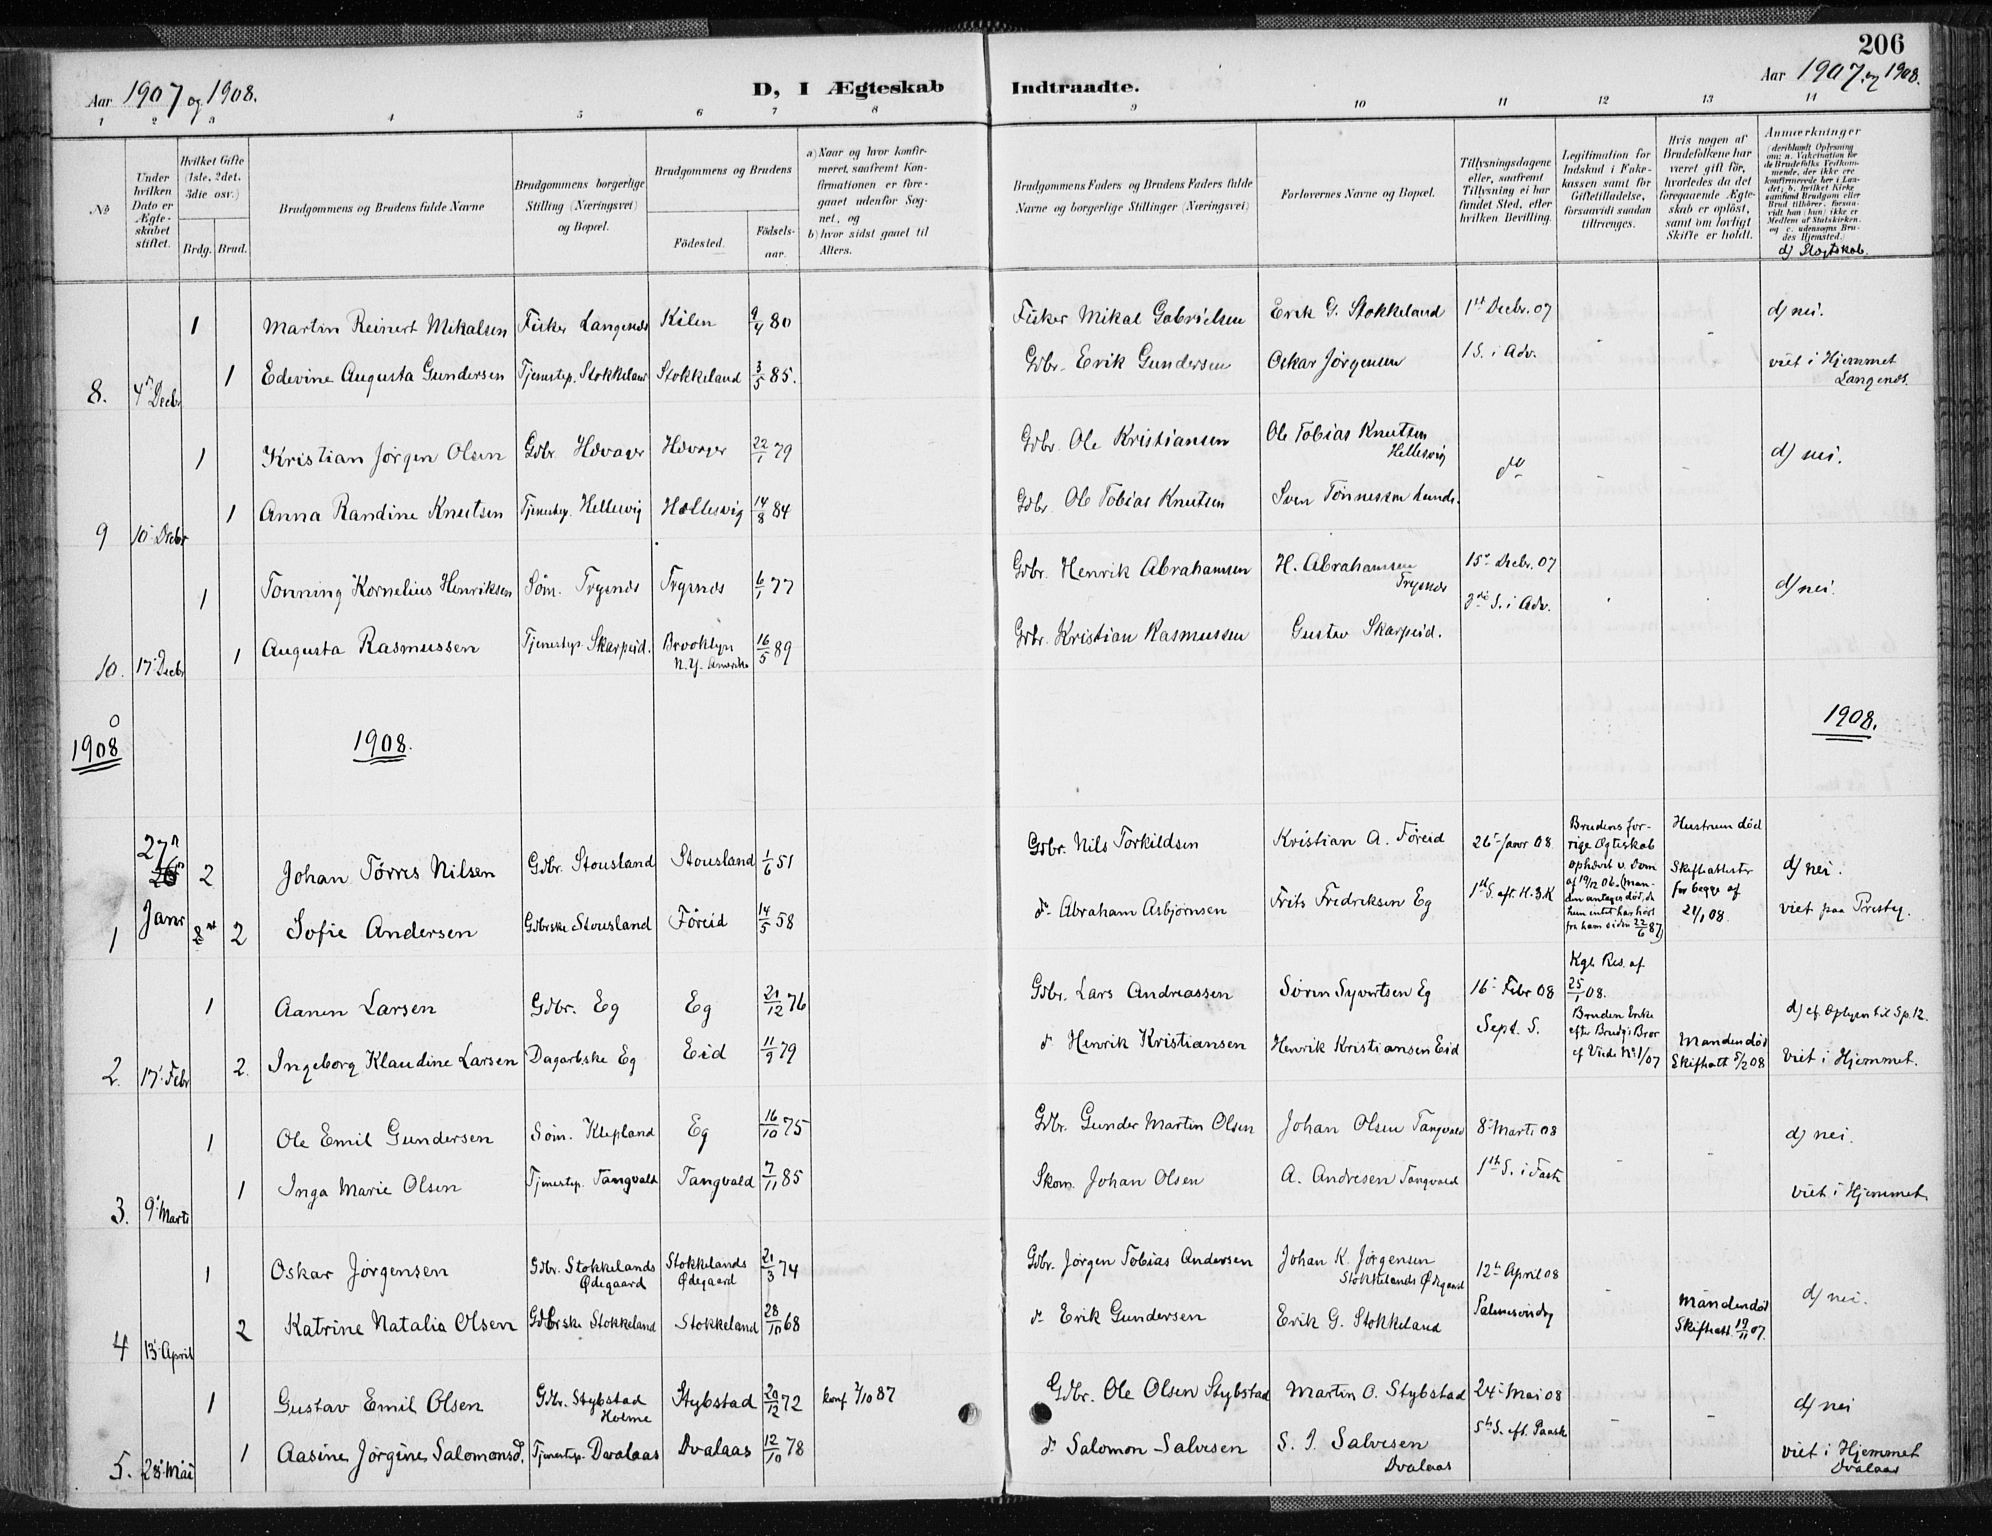 206
Aar 1907 og 1908.
D, I Ægteskab Indtraadte.
Aar 1907. og 1908.
1 2 3 4 5 6 7 8 9 10 11 12 13 14
No
Under hvilken Dato er Ægteskabet stiftet.
Hvilket Gifte (1ste, 2det, 3die osv.)
Brdg. Brud.
Brudgommens og Brudens fulde Navne
Brudgommens borgerlige Stilling (Næringsvei) og Bopæl.
Brudgommens og Brudens
Fødested.
Fødsels-aar.
a) Naar og hvor konfirmeret, saafremt Konfirmationen er foregaaet udenfor Sognet, og
b) hvor sidst gaaet til Alters.
Brudgommens Faders og Brudens Faders fulde Navne og borgerlige Stillinger (Næringsvei)
Forlovernes Navne og Bopæl.
Tillysningsdagene eller, saafremt Tillysning ei har fundet Sted, efter hvilken Bevilling.
Legitimation for Indskud i Enkekassen samt for Giftetilladelse, forsaavidt saadan tiltrænges.
Hvis nogen af Brudefolkene har været gift før, hvorledes da det foregaaende Ægteskab er opløst, samt om lovligt Skifte er holdt.
Anmærkninger
(deriblandt Oplysning om: a. Vakcination for de Brudefolks Vedkommende, der ikke ere konfirmerede her i Landet; b. hvilket Kirkesamfund Brudgom eller Brud tilhører, forsaavidt han (hun) ikke er Medlem af Statskirken, og c. udensogns Brudes Hjemsted.)
d) Slægtskab.
1 Martin Reinert Mikalsen Fisker Langenes Kilen 9/4 80 Fisker Mikal Gabrielsen Erik G. Stokkeland 1st Decbr. 07 d) nei.
8. 4n Decbr 1 Edevine Augusta Gundersen Tjenestep. Stokkeland Stokkeland 3/5 85. Gdbr. Erik Gundersen Oskar Jørgensen 1 S. i Adv. viet i Hjemmet
Langenes.
1 Kristian Jørgen Olsen Gdbr. Høvager Høvager 22/1 79 Gdbr. Ole Kristiansen Ole Tobias Knutsen
Hellesvig do d) nei.
9 10' Decbr 1 Anna Randine Knutsen Tjenestep. Hellesvig Hællesvig 14/8 84 Gdbr. Ole Tobias Knutsen Sven Tønnesen Lunds.
1 Tønning Kornelius Henriksen Søm. Trysnes Trysnes 6/1 77 Gdbr. Henrik Abrahamsen H. Abrahamsen
Trysnes 15' Decbr. 07
3die S. i Adv. d) nei.
10. 17' Decbr 1 Augusta Rasmussen Tjenestep. Skarpeid. Brooklyn
N.Y. Amerika 16/5 89 Gdbr. Kristian Rasmussen Gustav Skarpeid.
1908 1908. 1908.
27n Janr 2 Johan Tørres Nilsen Gdbr. Stousland Stousland 1/6 51 Gdbr. Nils Torkildsen Kristian A. Føreid 26' Janr 08
Brudens forrige Ægteskab ophævet v. Dom af 19/12 06. (Manden antages død, da hun intet har hørt fra ham siden 22/6 87)
Hustruen død
Skifteattester for begge af 21/1 08.
d) nei.
1 2 Sofie Andersen Gdbrske Stousland Føreid 14/5 58 do Abraham Asbjørnsen Frits Fredriksen Eg 1st S. eft. H. 3 K viet paa Presteg.
1 Aanen Larsen Gdbr. Eg Eg 21/12 76 Gdbr. Lars Andreassen Søren Syvertsen Eg 16' Febr 08
Kgl. Res. af 25/1 08.
Bruden Enke efter Brudg's Bror cf Viede No 1/07
d) cf. Oplysn til Sp. 12.
2. 17' Febr 2. Ingeborg Klaudine Larsen Dagarb.ske Eg Eid 11/9 79 do Henrik Kristiansen Henrik Kristiansen Eid Sept. S. Manden død
Skifteatt 5/2 08 Viet i Hjemmet.
1 Ole Emil Gundersen Søm. Klepland Eg 16/10 75 Gdbr. Gunder Martin Olsen Johan Olsen Tangvald 8' Marts 08 d) nei.
3. 9' Marts 1 Inga Marie Olsen Tjenestep. Tangvald Tangvald 7/11 85 Skom. Johan Olsen A. Andresen Tangvald 1st S. i Faste viet i Hjemmet.
1 Oskar Jørgensen Gdbr. Stokkelands
Ødegaard Stokkelands
Ødegaard 21/3 74 Gdbr. Jørgen Tobias Andersen Johan K. Jørgensen
Stokkelands Ødegaard 12te April 08 d) nei.
4 13' April 2 Katrine Natalia Olsen Gdbrske Stokkeland Stokkeland 28/10 68 do Erik Gundersen Erik G. Stokkeland Palmesøndag Manden død
Skifteatt. 19/11 07.
1 Gustav Emil Olsen Gdbr. Stybstad
Holme Stybstad 20/12 72 konf 2/10 87 Gdbr. Ole Olsen Stybstad Martin O. Stybstad 24' Mai 08 d) nei
5. 28' Mai 1 Aasine Jørgine Salomonsd. Tjenestep. Dvalaas Dvalaas 12/10 78 do Salomon Salvesen S. J. Salvesen
Dvalaas 5te S. eft. Paaske viet i Hjemmet
Dvalaas